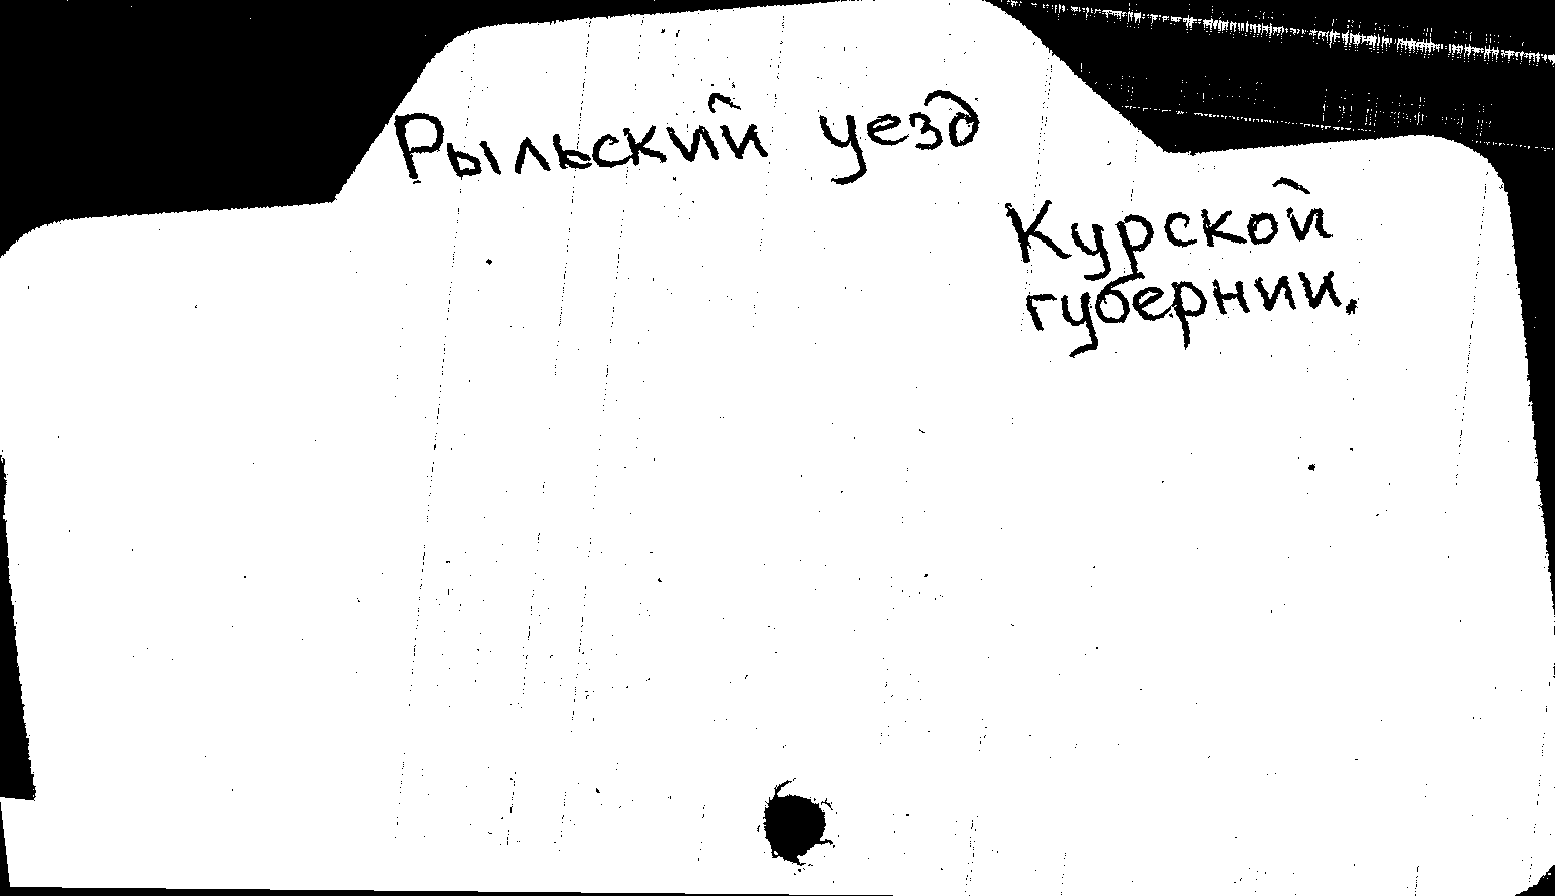 Рыльский уезд
Курской
губернии.